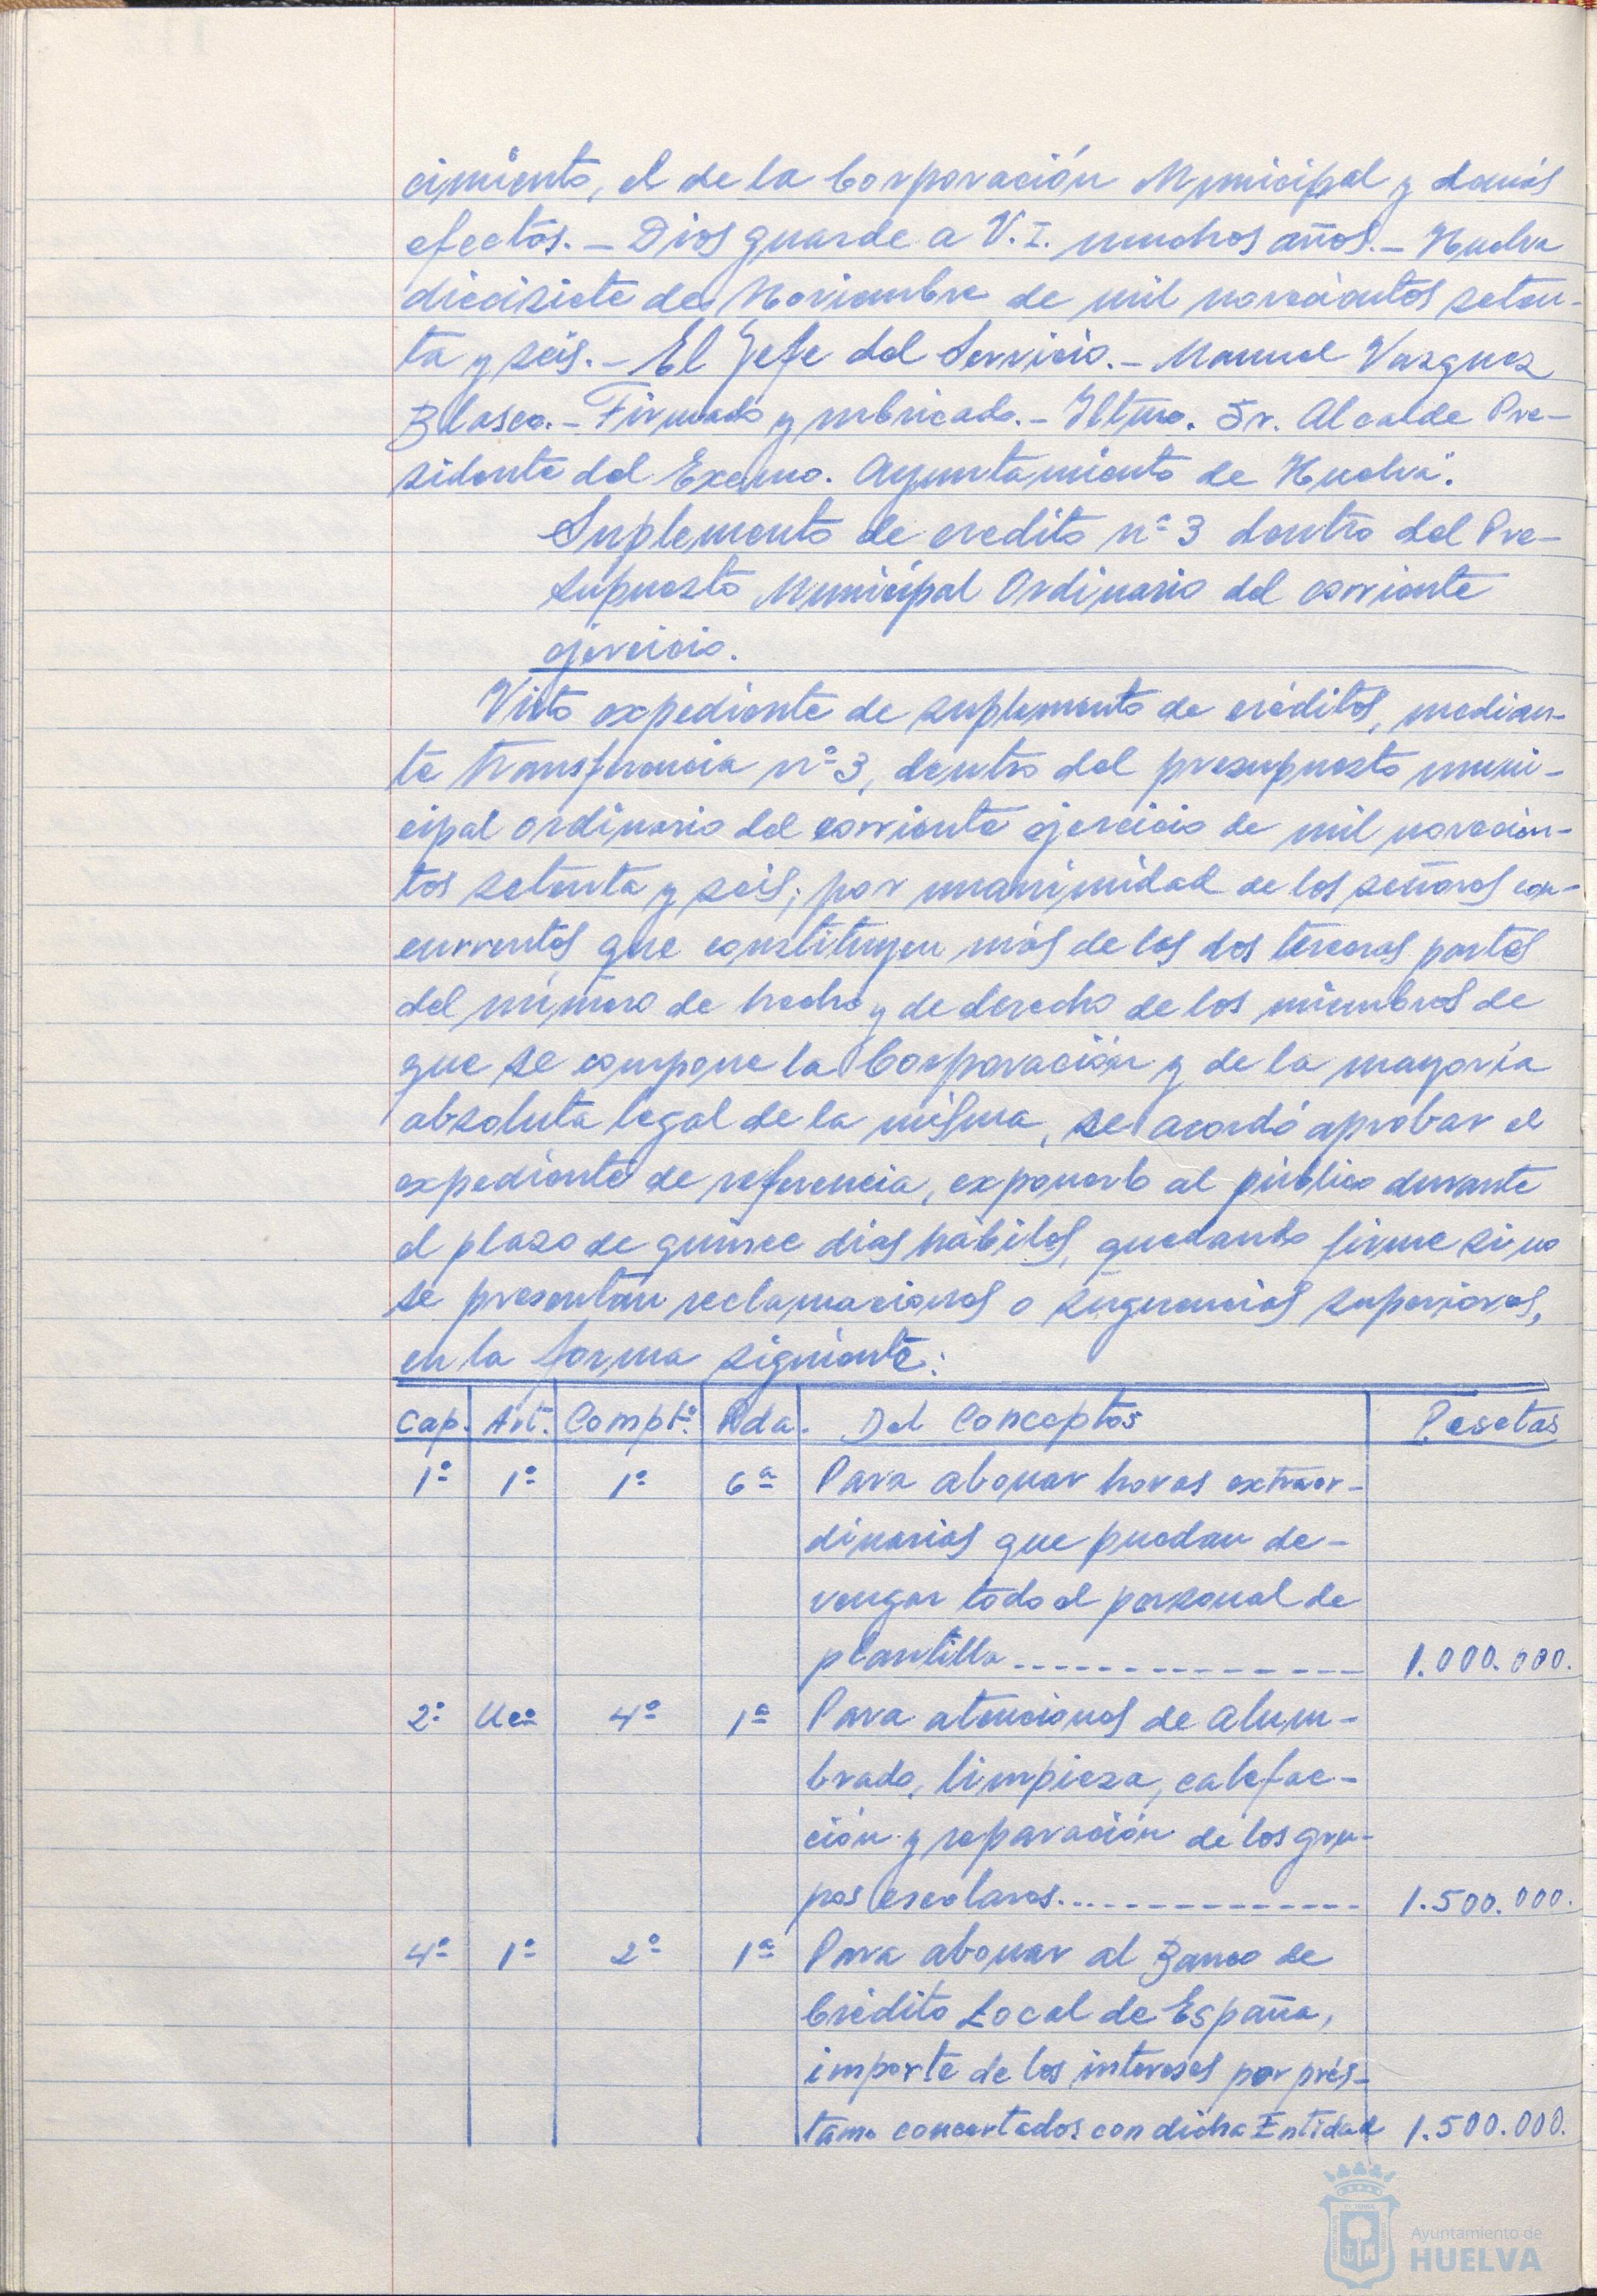 cimiento, el de la Corporación Municipal y demás
efectos.- Dios guarde a V.I. muchos años.- Huelva
diecisiete de Noviembre de mil novecientos seten-
ta y seis.- El Jefe del Servicio.- Manuel Vazquez
Blasco.- Firmado y rubricado.- Iltmo. Sr. Alcalde Pre-
sidente del Excmo. Ayuntamiento de Huelva".
Suplemento de credito nº 3 dentro del Pre-
supuesto Municipal Ordinario del corriente
ejercicio.
Visto expediente de suplemento de créditos, median-
te transferencia nº 3, dentro del presupuesto muni-
cipal ordinario del corriente ejercicio de mil novecien-
tos setenta y seis; por unanimidad de los señores con-
currentes que constituyen más de las dos terceras partes
del número de hecho y de derecho de los miembros de
que se compone la Corporación y de la mayoría
absoluta legal de la misma, se acordó aprobar el
expediente de referencia, exponerlo al público durante
el plazo de quince dias hábiles, quedando firme si no
se presentan reclamaciones o sugerencias superiores,
en la forma siguiente:
Cap. Art. Comptº. Pda. Del Conceptos Pesetas
1º 1º 1º 6ª Para abonar horas extraor-
dinarias que puedan de-
vengar todo el personal de
plantilla -------------- 1.000.000.
2º Ucº 4º 1ª Para atenciones de alum-
brado, limpieza, calefac-
ción y reparación de los gru-
pos escolares. -------------- 1.500.000.
4º 1º 2º 1ª Para abonar al Banco de
Crédito Local de España,
importe de los intereses por prés-
tamo concertados con dicha Entidad 1.500.000.
Ayuntamiento de
HUELVA